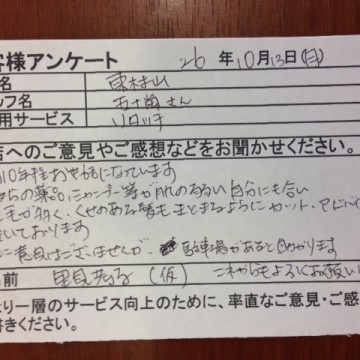 客様アンケート 26年10月13日(日)
名 東村山
ッフ名 五十嵐さん
用サービス ソロッチ
店へのご意見やご感想などをお聞かせください。
10年程お世話になっています
ちらの薬品、シャンプー等が肌の弱い自分にも合い
毛が多く、くせのある髪もまとまるようにカット、
いております
ご意見はございませんが、駐車場があると助かります
名前 里見 (仮) これからもよろしくお願い
より一層のサービス向上のために、率直なご意見・ご感
書きください。